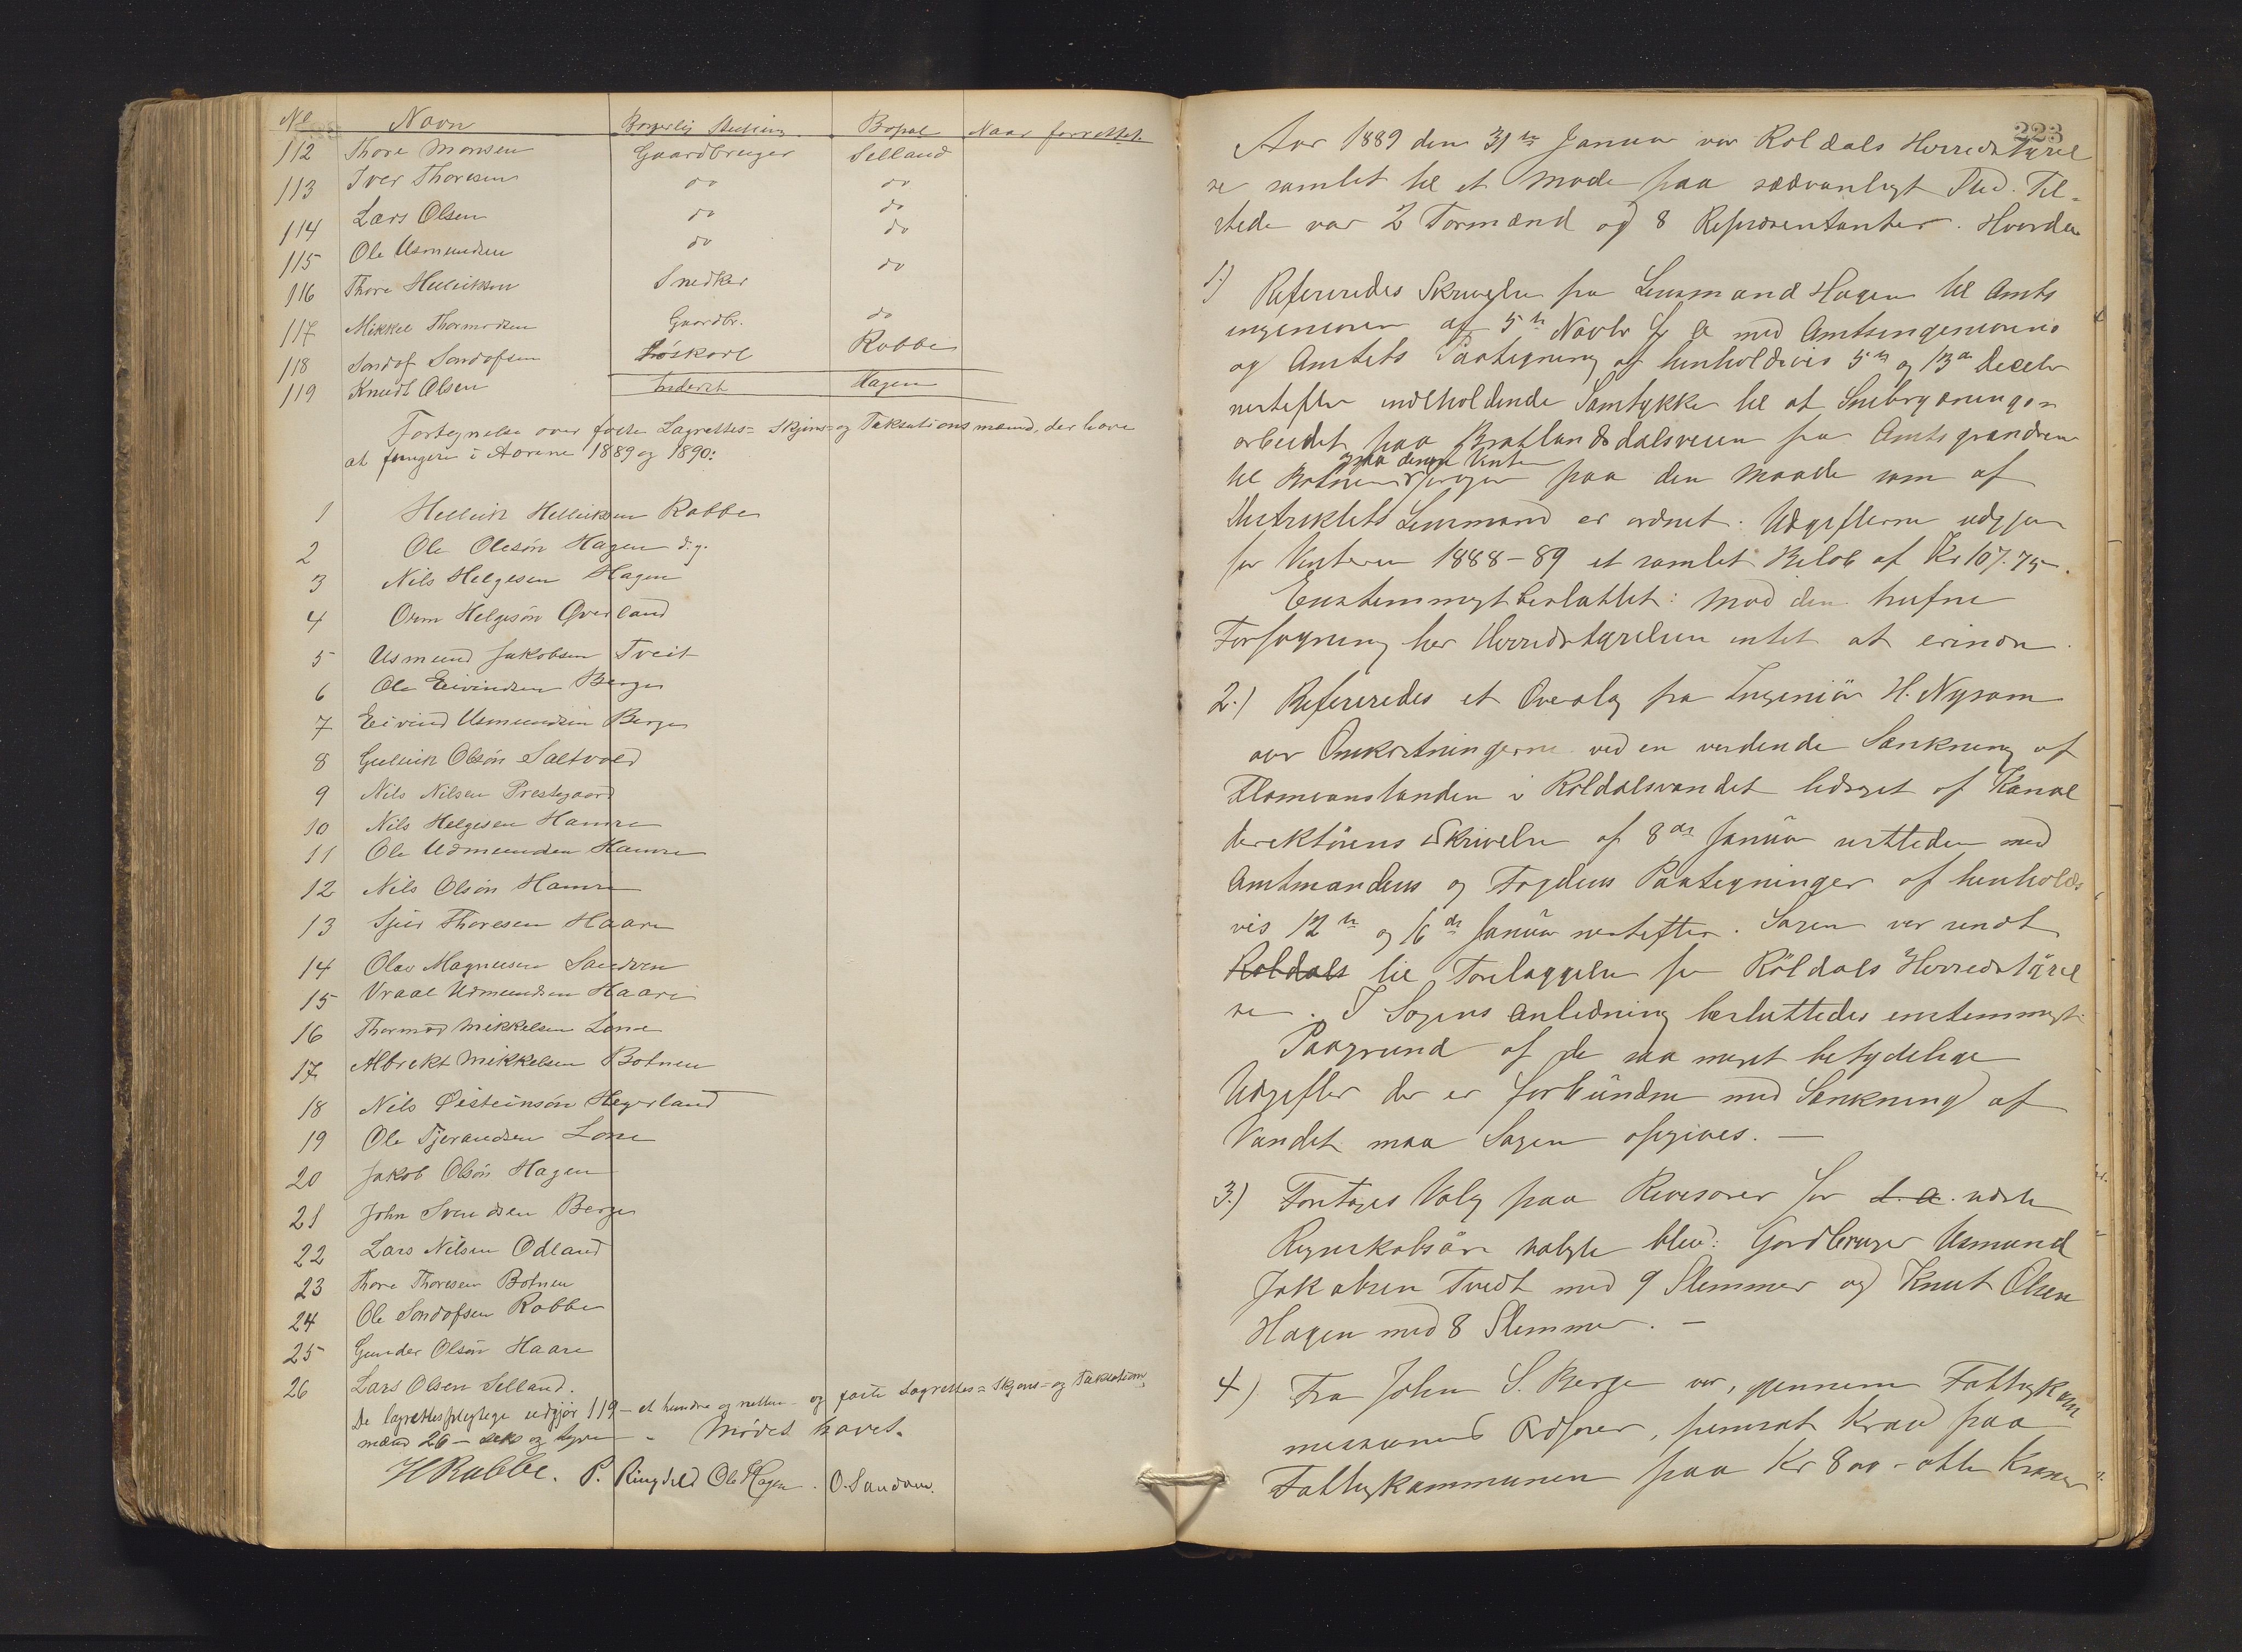 No Navn Borgerlig Stilling Bopæl Naar forrettet.
112 Thore Monsen Gaardbruger Selland
113 Iver Thoresen do do
114 Lars Olsen do do
115 Ole Asmundsen do do
116 Thore Helleiksen Snedker do
117 Mikkel Thormodsen Gaardbr. do
118 Sondof Sondofsen Löskarl Rabbe
119 Knudt Olsen Inderst Hagen
Fortegnelse over faste Lagrettes= Skjøns= og Taksationsmænd, der have
at fungere i Aarene 1889 og 1890:
1 Helleik Helleiksen Rabbe
2 Ole Olesön Hagen d.y.
3 Nils Helgesen Hagen
4 Orm Helgesön Øverland
5 Asmund Jakobsen Tveit
6 Ole Eivindsen Berge
7 Eivind Asmundsen Berge
8 Gulleik Olsön Saltvold
9 Nils Nilsen Prestegaard
10 Nils Helgesen Hamre
11 Ole Asmundsen Hamre
12 Nils Olsön Hamre
13 Sjur Thoresen Haare
14 Olav Magnusen Sandven
15 Vraal Asmundsen Haare
16 Thormod Mikkelsen Lone
17 Albrekt Mikkelsen Botnen
18 Nils Øisteinsön Hegerland
19 Ole Tjerandsen Lone
20 Jakob Olsön Hagen
21 John Svendsen Berge
22 Lars Nilsen Odland
23 Thore Thoresen Botnen
24 Ole Sondofsen Rabbe
25 Gunder Olsön Haare
26 Lars Olsen Selland.
De lagrettespligtige udgjør 119 - et hundre og nitten - og faste Lagrettes= Skjøns= og Taksations
mænd 26 - seks og tyve - Mødet hævet.
H Rabbe. P. Ringdeld Ole Hagen. O. Sandven.
223
Aar 1889 den 31te Januar var Roldals Herredstyrel
se samlet til et Møde paa sædvanligt Sted. Til-
stede var 2 Formænd og 8 Repræsentanter. Hvorda
1.) Refereredes Skrivelse fra Lensmand Hagen til Amts
ingeniøren af 5te Novbr f. a. med Amtsingeniørens
og Amtets Paategning af henholdsvis 5te og 13de Decebr
nestefter indeholdende Samtykke til at Snebrydnings-
arbeidet paa Bratlandsdalsveien fra Amtsgrændsen
ogsaa denne Vinter
til Botnen paa den Maade som af
Distriktets Lensmand er ordnet. Udgifterne udgjør
for Vinteren 1888-89 et samlet Beløb af Kr 107.75.
Eenstemmigt besluttet: Mod den trufne
Forføyning har Herredstyrelsen intet at erindre.
2.) Refereredes et Overslag fra Ingeniör H. Nysom
over Omkostningerne ved en vordende Sænkning af
Flomvandstanden i Röldalsvandet ledsaget af Kanal
direktörens Skrivelse af 8de Januar sidstleden med
Amtmandens og Fogdens Paategninger af henholds
vis 12te og 16de Januar nestefter. Sagen var sendt
Roldals til Forelæggelse for Röldals Herredstyrel
se. I Sagens Anledning besluttedes enstemmigt:
Paagrund af de saa meget betydelige
Udgifter der er forbundne med Sænkning af
Vandet maa Sagen opgives. —
3.) Foretoges Valg paa Revisorer for d. a. næste
Regnskabsår valgte blev: Gardbruger Asmund
Jakobsen Tvedt med 9 Stemmer og Knut Olsen
Hagen med 8 Stemmer. —
4) Fra John S. Berge var, gjennem Fattigkom
missionens Ordfører, fremsat Krav paa
Fattigkommunen paa Kr 8 00 - otte Kroner